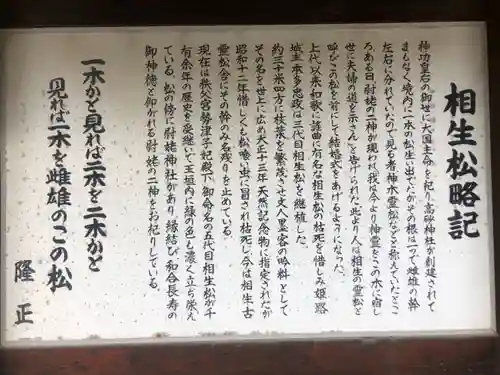 相生松略記
神功皇后の御世に大国主命を祀り高砂神社が創建されて
まもなく境内に一本の松生い出でたがその根は一つで雌雄の幹
左右に分れていたので見る者神木霊松などと称えていたところ
ろある日尉姥の二神が現われ我は今より神霊をこの木に宿し
世に夫婦の道を示さんと告げられた此より人は相生の霊松と
呼びこの松を前にして結婚式をあげるようになった。
上代以来和歌に謡曲に有名な相生の松の枯死を惜しみ姫路
城主本多忠政は三代目相生松を継植した。
約三十米四方に枝葉を繁茂させ文人墨客の吟料として
その名を世上に広め大正十三年天然記念物に指定されたが
昭和十二年惜しくも松喰い虫に冒され枯死し今は相生古
霊松舎にその幹のみ名残りを止めている。
現在は秩父宮勢津子妃殿下御命名の五代目相生松が千
有余年の歴史を受継いで玉垣内に緑の色も濃く立ち栄え
ている。松の傍に尉姥神社があり、縁結び和合長寿の
御神徳と仰がれる尉姥の二神をお祀りしている。
一木かと見れば二木を二木かと
見れば一木を雌雄のこの松
隆正